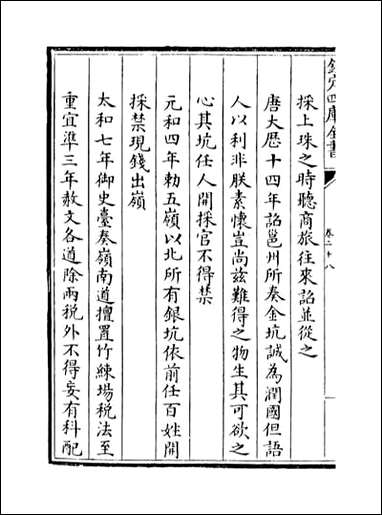 欽定四庫全書
卷二十八
採上珠之時聽商旅往來詔並從之
唐大歷十四年詔邕州所奏金坑誠為潤國但語
人以利非朕素懷豈尚茲難得之物生其可欲之
心其坑任人開採官不得禁
元和四年勅五嶺以北所有銀坑依前任百姓開
採禁現錢出嶺
太和七年御史臺奏嶺南道擅置竹練場税法至
重宜準三年赦文各道除兩税外不得妄有科配